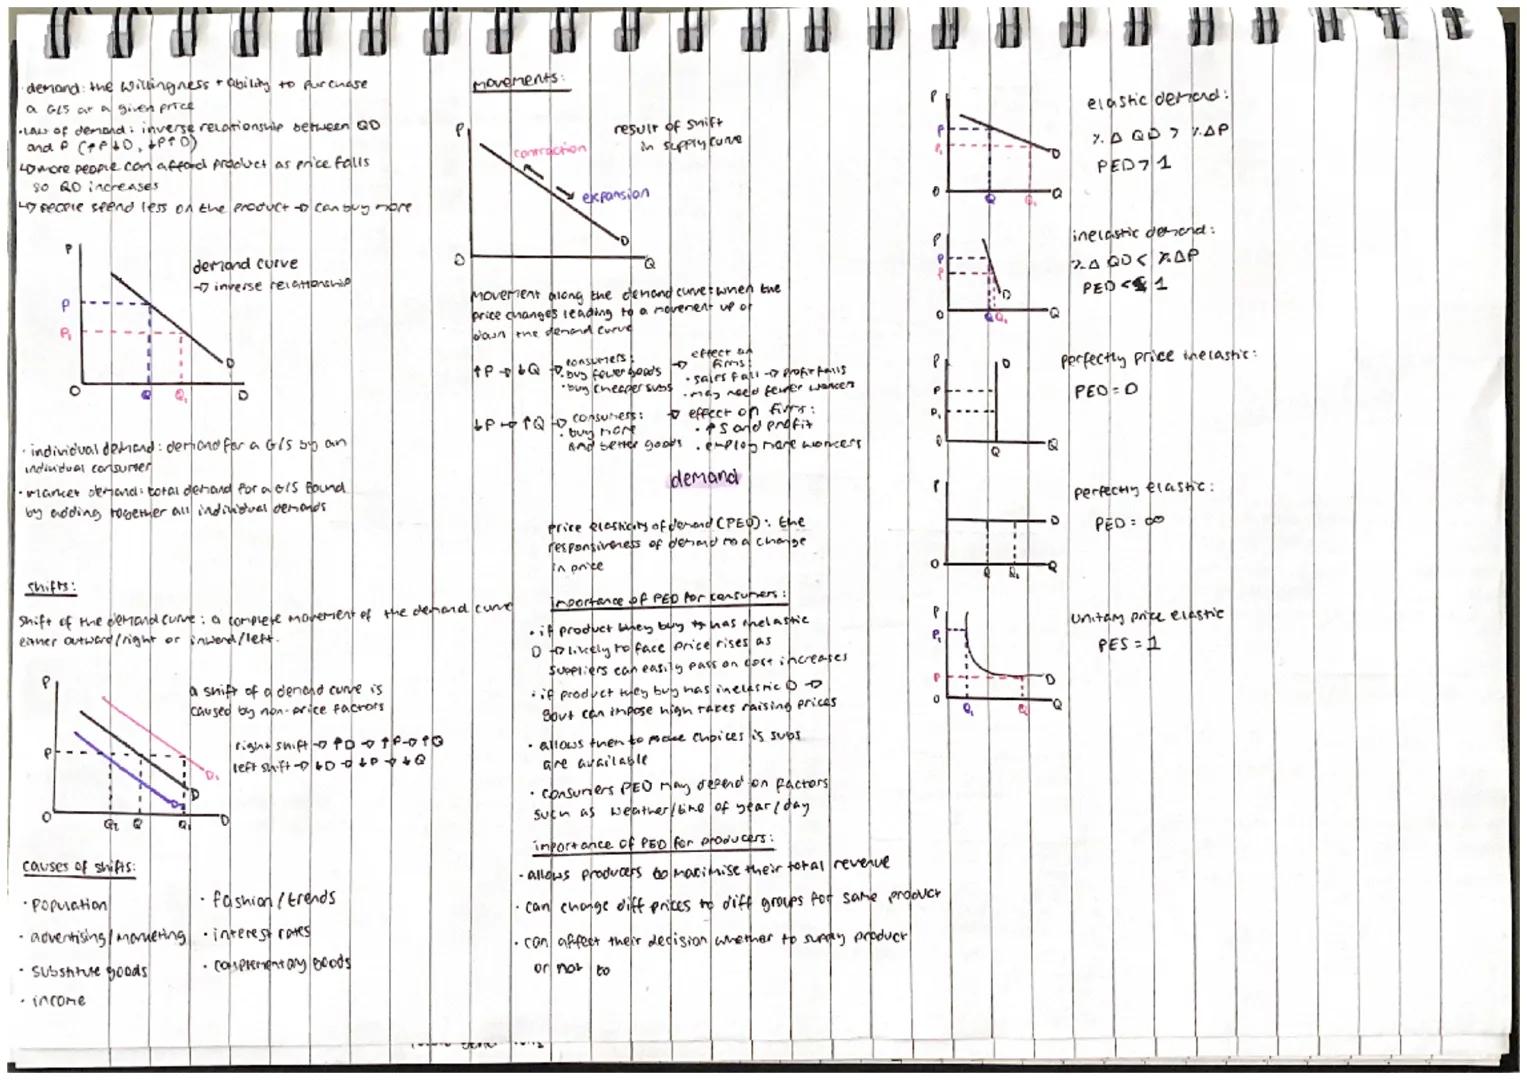 · demand: the willingness + ability to purchase
a G/S at a given price
· law of demand: inverse relationship between QD
and P (↑P↓D, ↓P↑D)
↳ more people can afford product as price falls
so QD increases
↳ people spend less on the product → can buy more
P
demand curve
→ inverse relationship
P
P₁
D
O
Q
Q₁
Q
· individual demand: demand for a G/S by an
individual consumer
· market demand: total demand for a G/S found
by adding together all individual demands
shifts:
shift of the demand curve: a complete movement of the demand curve
either outward/right or inward/left.
P
a shift of a demand curve is
caused by non-price factors
right shift → ↑D → ↑P → ↑Q
left shift → ↓D → ↓P → ↓Q
P
D₁
D
D₂
O
Q₂
Q
Q₁
causes of shifts:
· population
· advertising/marketing
· substitute goods
· income
· fashion/trends
· interest rates
· complementary goods
movements:
P
result of shift
in supply curve
contraction
expansion
D
O
Q
movement along the demand curve: when the
price changes leading to a movement up or
down the demand curve
↑P → ↓Q → consumers: → effect on firms:
· buy fewer goods
· buy cheaper subs
· sales fall → profit falls
· may need fewer workers
↓P → ↑Q → consumers: → effect on firms:
· buy more
and better goods
· ↑S and profit
· employ more workers
demand
price elasticity of demand (PED): the
responsiveness of demand to a change
in price
importance of PED for consumers:
· if product they buy has inelastic
D → likely to face price rises as
suppliers can easily pass on cost increases
· if product they buy has inelastic D →
govt can impose high taxes raising prices
· allows them to make choices is subs
are available
· consumers PED may depend on factors
such as weather/time of year/day
importance of PED for producers:
· allows producers to maximise their total revenue
· can change diff prices to diff groups for same product
· can affect their decision whether to supply product
or not to
P
elastic demand:
% Δ QD > % ΔP
PED > 1
P
P₁
D
O
Q
Q₁
Q
P
inelastic demand:
% Δ QD < % ΔP
PED < 1
P
P₁
D
O
Q
Q₁
Q
P
D
perfectly price inelastic:
PED = 0
P
P₁
O
Q
Q
P
perfectly elastic:
PED = ∞
D
O
Q
Q₁
Q
P
unitary price elastic
PES = 1
P₁
P
D
O
Q₁
Q
Q